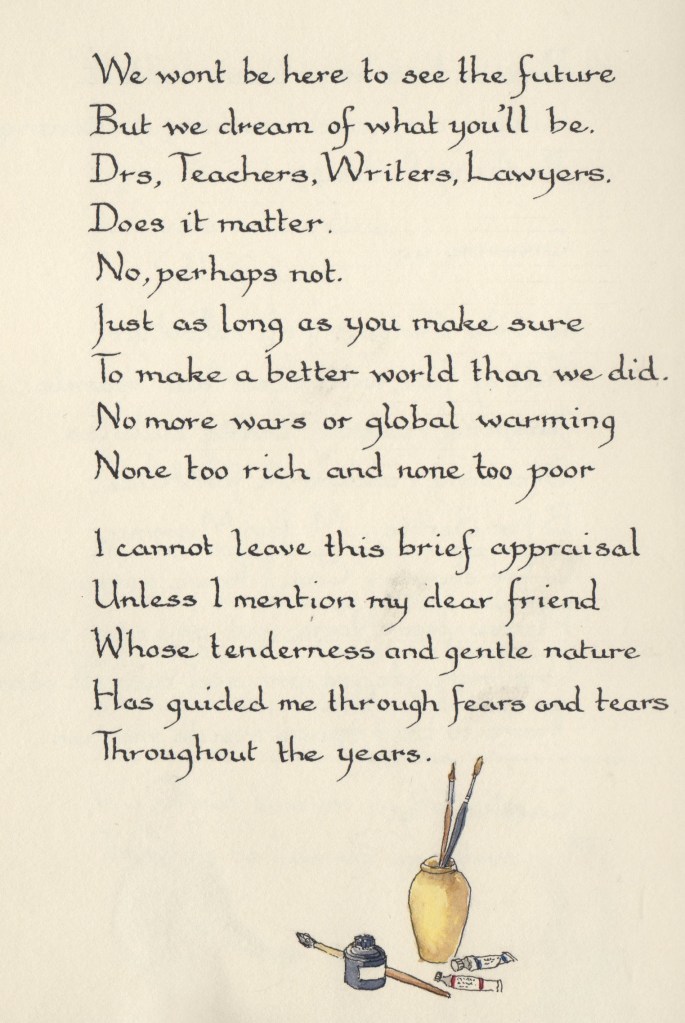 We wont be here to see the future
But we dream of what you'll be.
Drs, Teachers, Writers, Lawyers.
Does it matter.
No, perhaps not.
Just as long as you make sure
To make a better world than we did.
No more wars or global warming
None too rich and none too poor
I cannot leave this brief appraisal
Unless I mention my dear friend
Whose tenderness and gentle nature
Has guided me through fears and tears
Throughout the years.